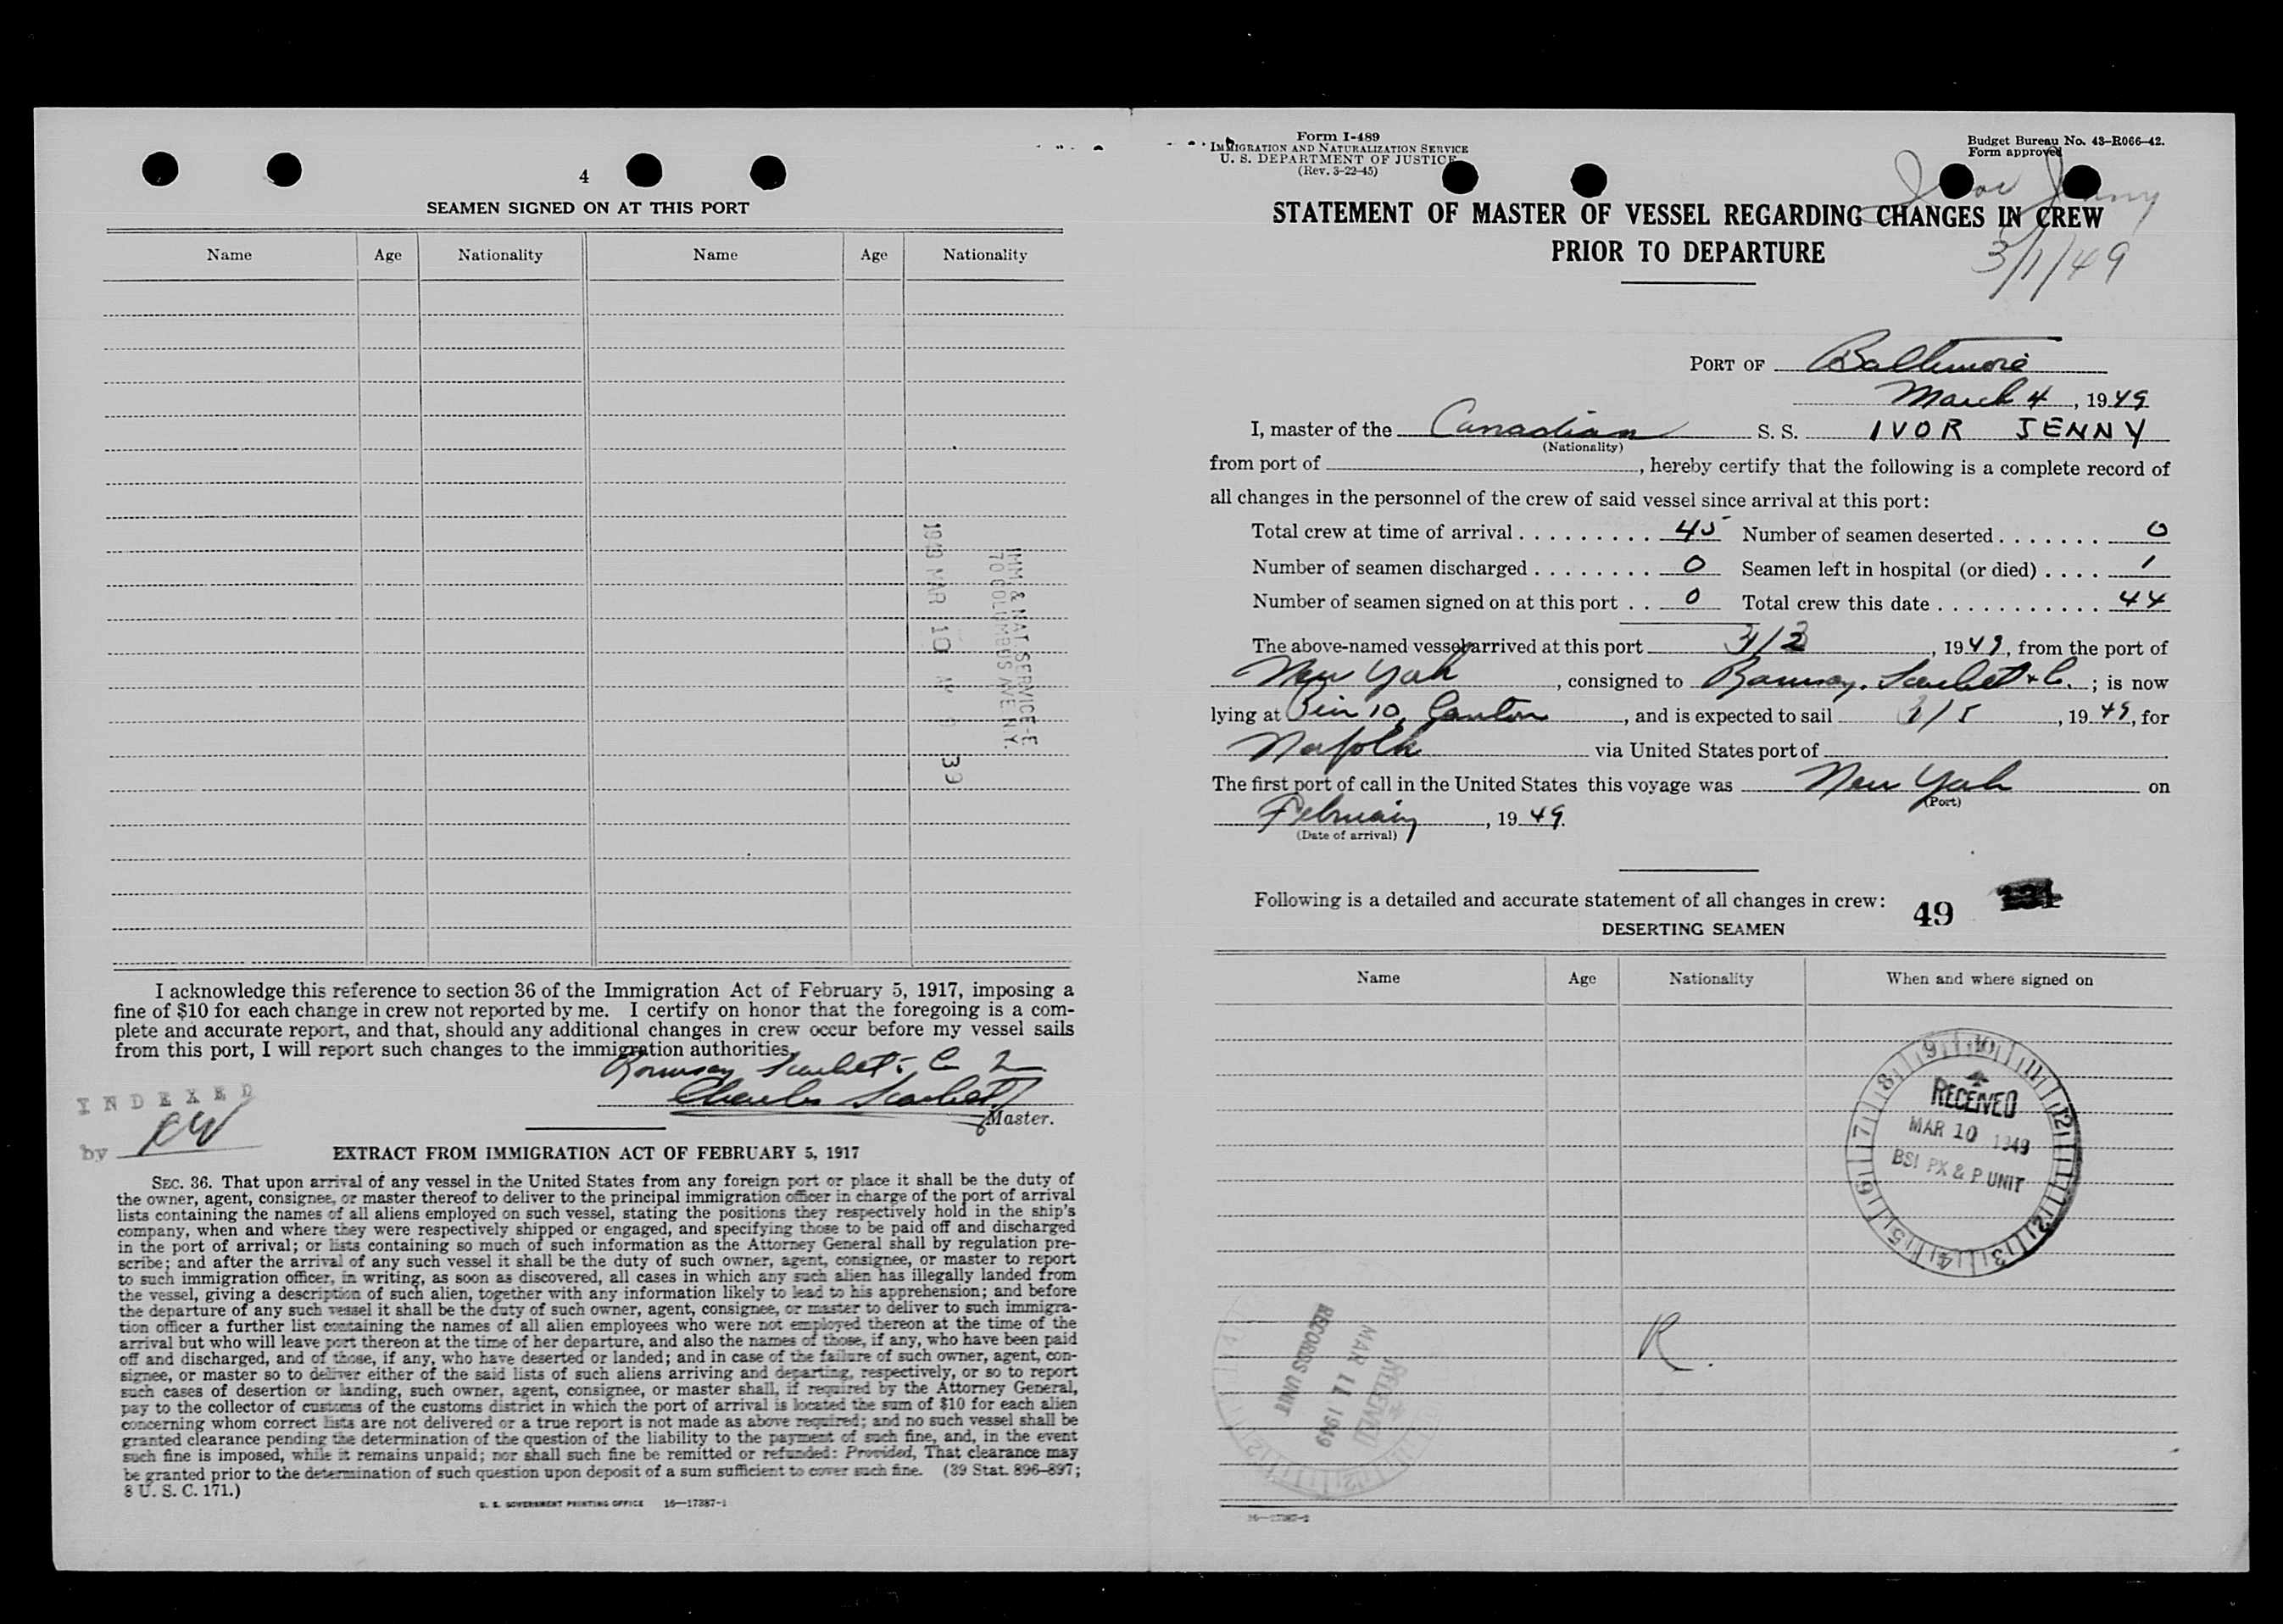 4
SEAMEN SIGNED ON AT THIS PORT
Name Age Nationality Name Age Nationality
IMM & NAT. SERVICE-E.
70 COLUMBUS AVE N.Y.
1949 MAR 10 39
I acknowledge this reference to section 36 of the Immigration Act of February 5, 1917, imposing a
fine of $10 for each change in crew not reported by me. I certify on honor that the foregoing is a com-
plete and accurate report, and that, should any additional changes in crew occur before my vessel sails
from this port, I will report such changes to the immigration authorities.
Ramsay Scarlet & Co
Charles Scarlett
Master.
INDEXED
by
EXTRACT FROM IMMIGRATION ACT OF FEBRUARY 5, 1917
SEC. 36. That upon arrival of any vessel in the United States from any foreign port or place it shall be the duty of
the owner, agent, consignee, or master thereof to deliver to the principal immigration officer in charge of the port of arrival
lists containing the names of all aliens employed on such vessel, stating the positions they respectively hold in the ship's
company, when and where they were respectively shipped or engaged, and specifying those to be paid off and discharged
in the port of arrival; or lists containing so much of such information as the Attorney General shall by regulation pre-
scribe; and after the arrival of any such vessel it shall be the duty of such owner, agent, consignee, or master to report
to such immigration officer, in writing, as soon as discovered, all cases in which any such alien has illegally landed from
the vessel, giving a description of such alien, together with any information likely to lead to his apprehension; and before
the departure of any such vessel it shall be the duty of such owner, agent, consignee, or master to deliver to such immigra-
tion officer a further list containing the names of all alien employees who were not employed thereon at the time of the
arrival but who will leave port thereon at the time of her departure, and also the names of those, if any, who have been paid
off and discharged, and of those, if any, who have deserted or landed; and in case of the failure of such owner, agent, con-
signee, or master so to deliver either of the said lists of such aliens arriving and departing, respectively, or so to report
such cases of desertion or landing, such owner, agent, consignee, or master shall, if required by the Attorney General,
pay to the collector of customs of the customs district in which the port of arrival is located the sum of $10 for each alien
concerning whom correct lists are not delivered or a true report is not made as above required; and no such vessel shall be
granted clearance pending the determination of the question of the liability to the payment of such fine, and, in the event
such fine is imposed, while it remains unpaid; nor shall such fine be remitted or refunded: Provided, That clearance may
be granted prior to the determination of such question upon deposit of a sum sufficient to cover such fine. (39 Stat. 896-897;
8 U. S. C. 171.)
U. S. GOVERNMENT PRINTING OFFICE 16—17387-1
Form I-489
IMMIGRATION AND NATURALIZATION SERVICE
U. S. DEPARTMENT OF JUSTICE
(Rev. 3-22-45)
Budget Bureau No. 43-R066-42.
Form approved
Ivor Jenny
STATEMENT OF MASTER OF VESSEL REGARDING CHANGES IN CREW
PRIOR TO DEPARTURE
3/1/49
PORT OF Baltimore
March 4, 1949
I, master of the Canadian S. S. IVOR JENNY
(Nationality)
from port of , hereby certify that the following is a complete record of
all changes in the personnel of the crew of said vessel since arrival at this port:
Total crew at time of arrival . . . . . . . . . . 45 Number of seamen deserted . . . . . . . 0
Number of seamen discharged . . . . . . . . 0 Seamen left in hospital (or died) . . . . 1
Number of seamen signed on at this port . . 0 Total crew this date . . . . . . . . . . . . 44
The above-named vessel arrived at this port 3/2, 1949, from the port of
New York, consigned to Ramsay, Scarlet & Co.; is now
lying at Pier 10, Canton, and is expected to sail 3/5, 1949, for
Norfolk via United States port of
The first port of call in the United States this voyage was New York on
(Port)
February, 1949.
(Date of arrival)
Following is a detailed and accurate statement of all changes in crew: 49
DESERTING SEAMEN
Name Age Nationality When and where signed on
RECEIVED
MAR 10 1949
BSI PX & P UNIT
R.
RECEIVED
MAR 11 1949
RECORDS UNIT
16—17387-2